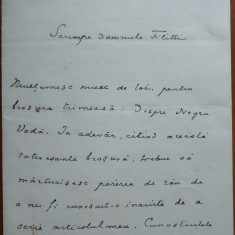 Scumpe Domnule Filitti
Mulțumesc mult de tot, pentru
broșura trimeasă: Despre Negru
Vodă. În adevăr, citind această
interesantă broșură, trebue să
mărturisesc părerea de rău de
a nu fi cunoscut-o înainte de a
scrie articolul meu. Cunoștințele